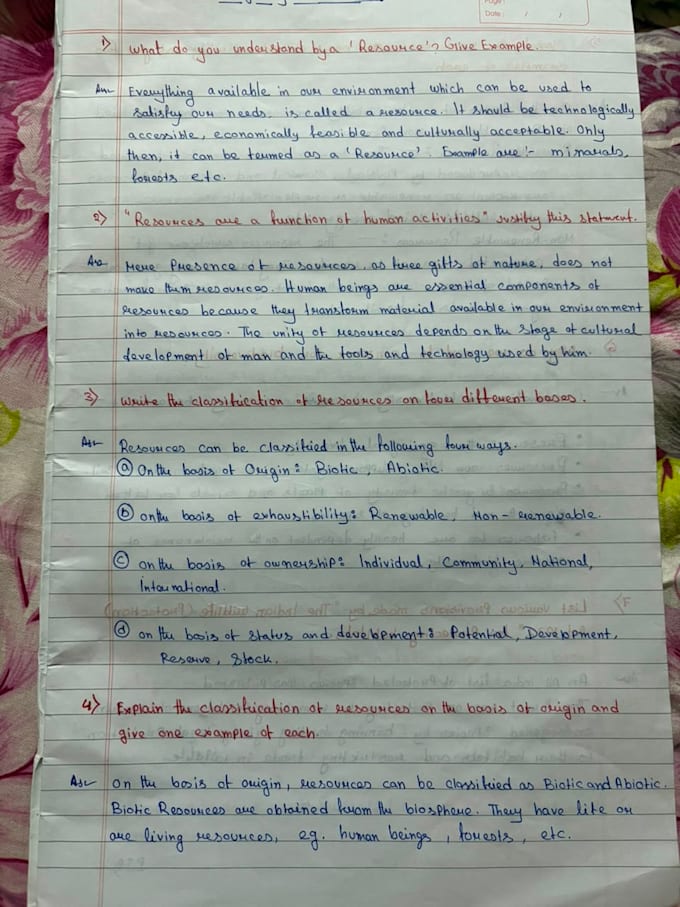 Page:
Date: / /
1) What do you understand by a 'Resource'? Give Example.
Ans Everything available in our environment which can be used to
satisfy our needs, is called a resource. It should be technologically
accessible, economically feasible and culturally acceptable. Only
then, it can be termed as a 'Resource'. Example are :- minarals,
forests etc.
2) "Resources are a function of human activities" Justify this statement.
Ans Mere Presence of resources, as free gifts of nature, does not
make them resources. Human beings are essential components of
resources because they transform material available in our environment
into resources. The unity of resources depends on the stage of cultural
development of man and the tools and technology used by him.
3) Write the classification of resources on four different bases.
Ans Resources can be classified in the following four ways.
(a) On the basis of Origin: Biotic, Abiotic.
(b) on the basis of exhaustibility: Renewable, Non-renewable.
(c) on the basis of ownership: Individual, Community, National,
International.
(d) on the basis of status and development: Potential, Development,
Reserve, Stock.
4) Explain the classification of resources on the basis of origin and
give one example of each.
Ans On the basis of origin, resources can be classified as Biotic and Abiotic.
Biotic Resources are obtained from the biosphere. They have life or
are living resources, eg. human beings, forests, etc.